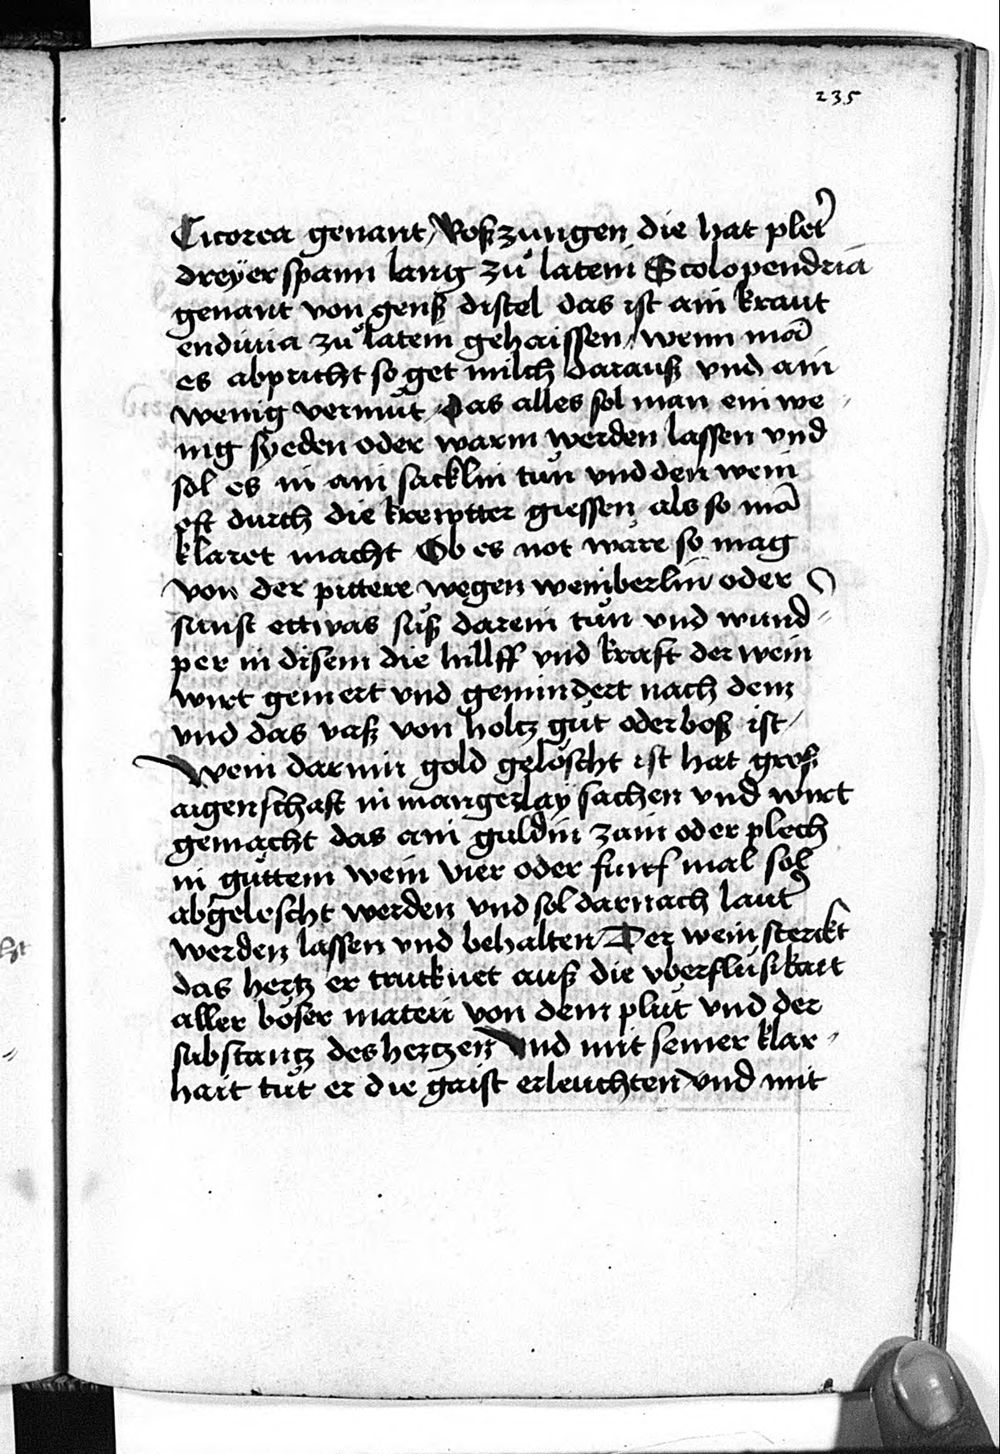 235
Cicorea genant / Roßzungen die hat plet᷑
dreyer spann lang zů latein Scolopendria
genant von genß distel das ist ain kraut
endiuia zů latein gehaissen / wenn mā
es abpricht so get milch darauß vnd ain
wenig vermůt / Das alles sol man ein we-
nig syeden oder warm werden lassen vnd
sol es in ain sacklin tůn vnd den wein
oft durch die krewtter giessen als so mā
klaret macht Ob es not wäre so mag
von der pittere wegen weinberlin oder
sunst ettwas sůß darein tůn vnd wund-
per in disem die hillff vnd kraft der wein
wirt gemert vnd gemindert nach dem
vnd das vaß von holtz gůt oder boß ist /
Wein darinn gold gelöscht ist hat groß
aigenschaft in mangerlay sachen vnd wirt
gemacht das ain guldin zain oder plech
in gůttem wein vier oder funf mal sol
abgelescht werden vnd sol darnach laut᷑
werden lassen vnd behalten Der wein sterckt
das hertz er trucknet auß die vberflüsikait
aller böser materi von dem plůt vnd der
substantz des hertzen Vnd mit seiner klar-
hait tůt er die gaist erleuchten vnd mit